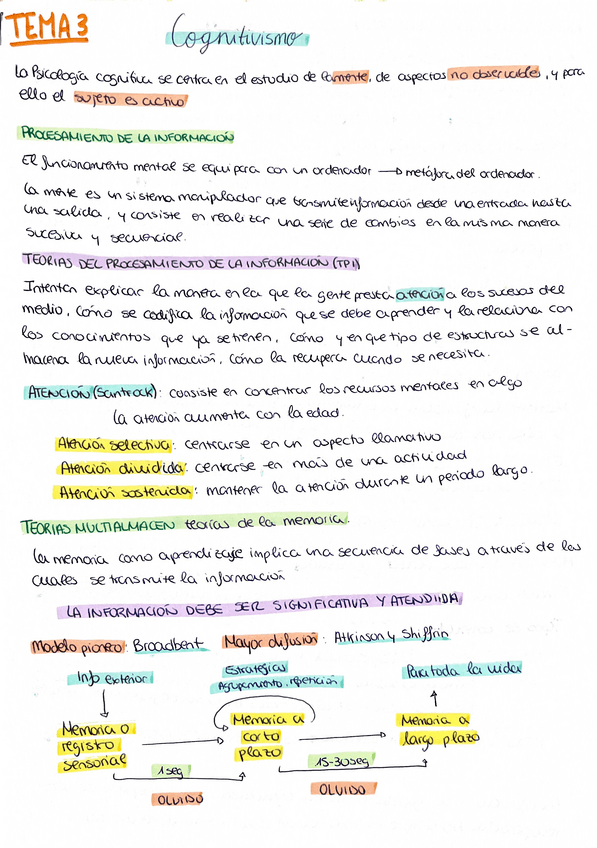 TEMA 3
Cognitivismo
La Psicología cognitiva se centra en el estudio de la mente, de aspectos no observables, y para
ello el sujeto es activo
PROCESAMIENTO DE LA INFORMACIÓN
El funcionamiento mental se equipara con un ordenador → metáfora del ordenador.
La mente es un sistema manipulador que transmite información desde una entrada hasta
una salida, y consiste en realizar una serie de cambios en la misma manera
sucesiva y secuencial.
TEORIAS DEL PROCESAMIENTO DE LA INFORMACIÓN (TPI)
Intentan explicar la manera en la que la gente presta atención a los sucesos del
medio, cómo se codifica la información que se debe aprender y la relaciona con
los conocimientos que ya se tienen, cómo y en que tipo de estructuras se al-
macena la nueva información, cómo la recupera cuando se necesita.
ATENCIÓN (Santrock): consiste en concentrar los recursos mentales en algo
La atención aumenta con la edad.
Atención selectiva: centrarse en un aspecto llamativo
Atención dividida: centrarse en más de una actividad
Atención sostenida: mantener la atención durante un periodo largo.
TEORIAS MULTIALMACEN teorías de la memoria.
La memoria como aprendizaje implica una secuencia de fases a través de las
cuales se transmite la información
LA INFORMACIÓN DEBE SER SIGNIFICATIVA Y ATENDIDA
Modelo pionero: Broadbent Mayor difusión: Atkinson y Shiffrin
Info exterior
Estrategias
Agrupamiento, repetición
Para toda la vida
Memoria o
registro
sensorial
Memoria a
corto
plazo
Memoria a
largo plazo
1 seg
15-30 seg
OLVIDO
OLVIDO